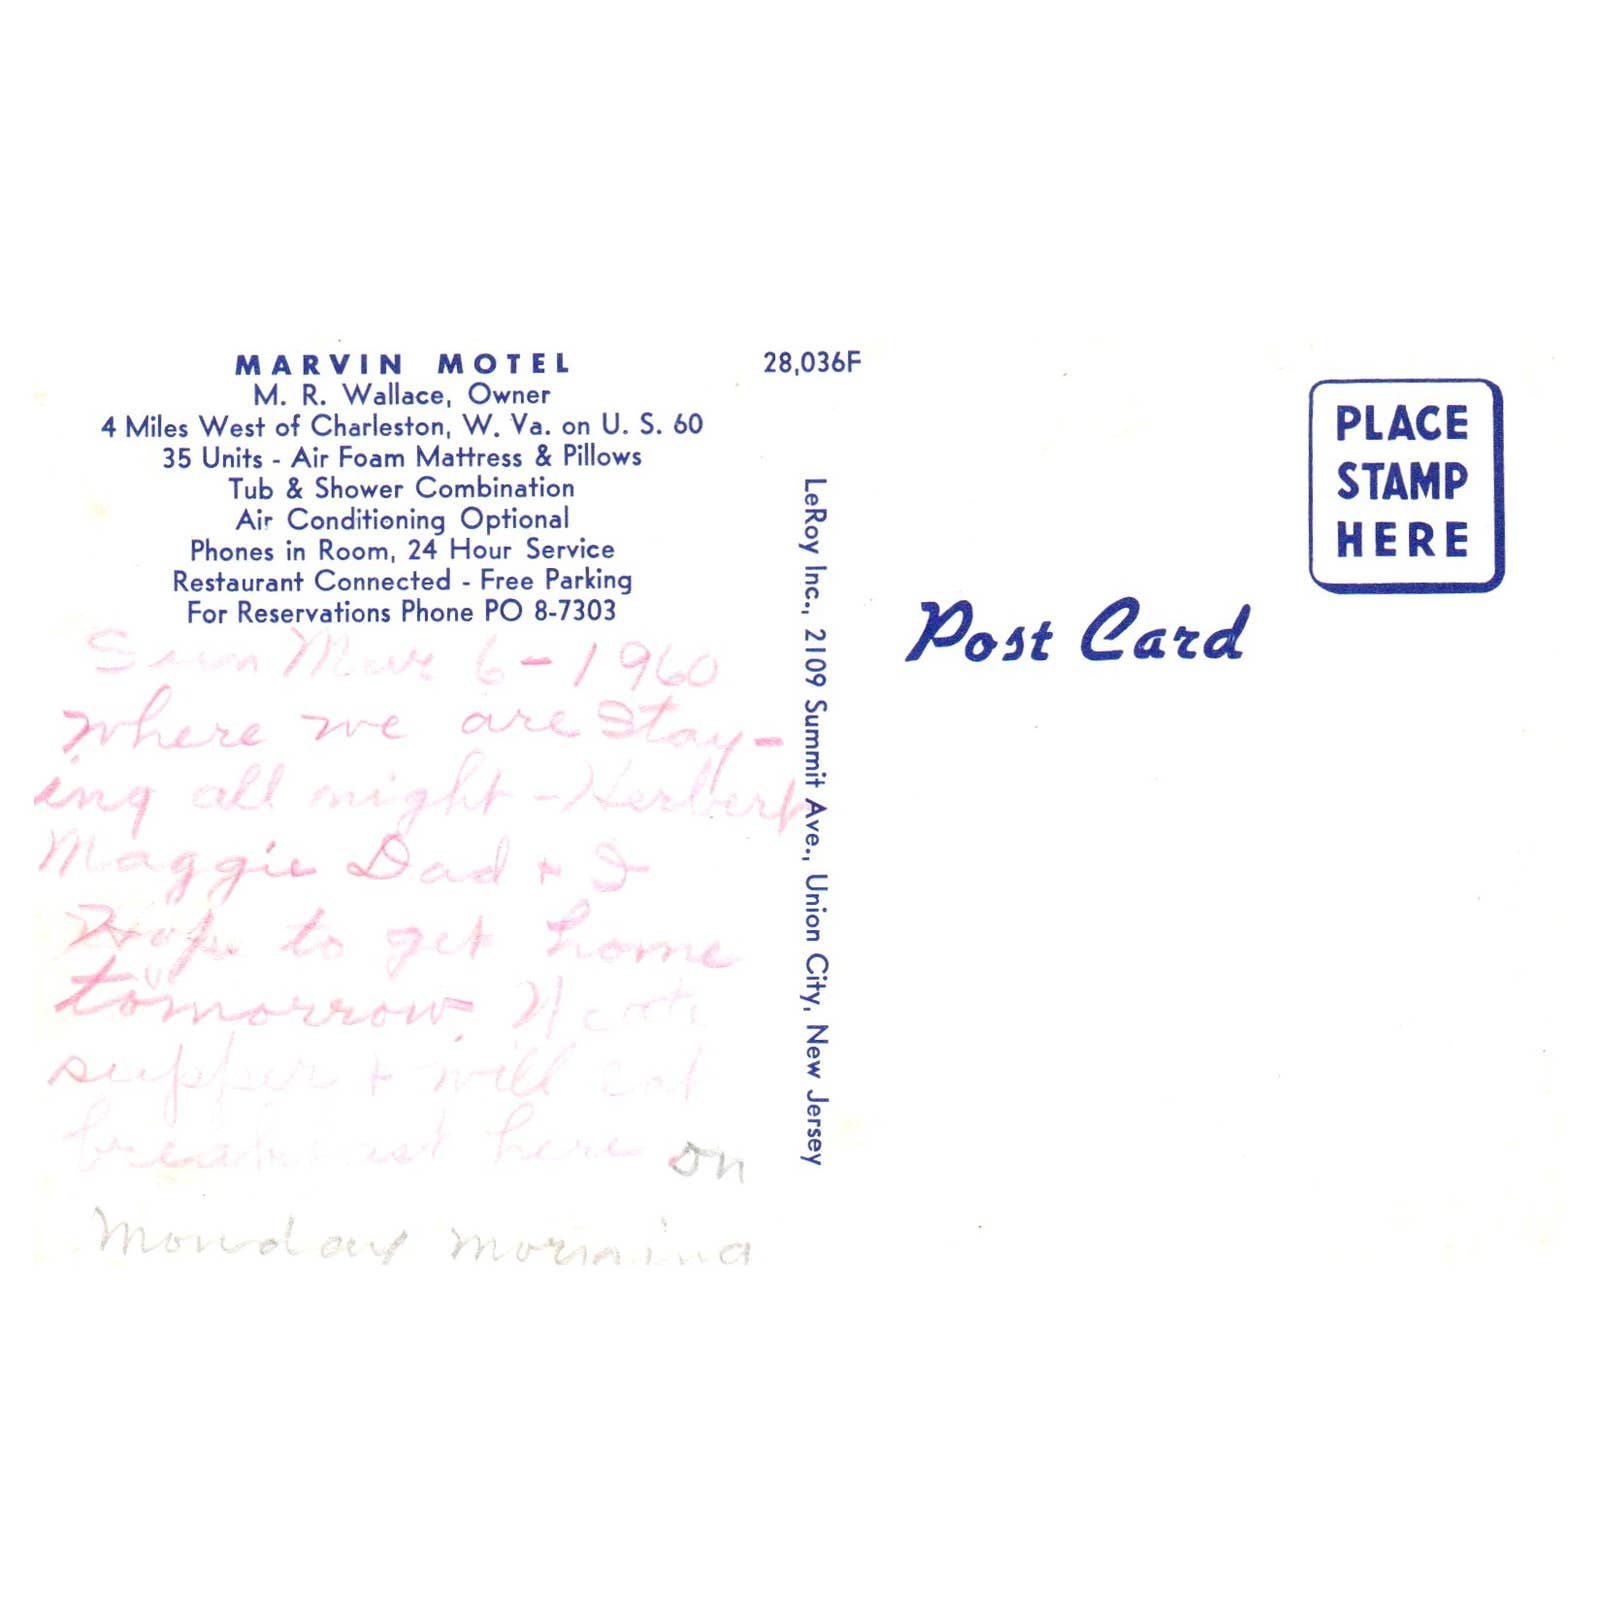 MARVIN MOTEL
M. R. Wallace, Owner
4 Miles West of Charleston, W. Va. on U. S. 60
35 Units - Air Foam Mattress & Pillows
Tub & Shower Combination
Air Conditioning Optional
Phones in Room, 24 Hour Service
Restaurant Connected - Free Parking
For Reservations Phone PO 8-7303
Sun Mar 6-1960
where we are Stay-
ing all night - Herbert
Maggie Dad + I
Hope to get home
tomorrow.
supper + will eat
breakfast here on
Monday morning
28,036F
LeRoy Inc., 2109 Summit Ave., Union City, New Jersey
Post Card
PLACE
STAMP
HERE